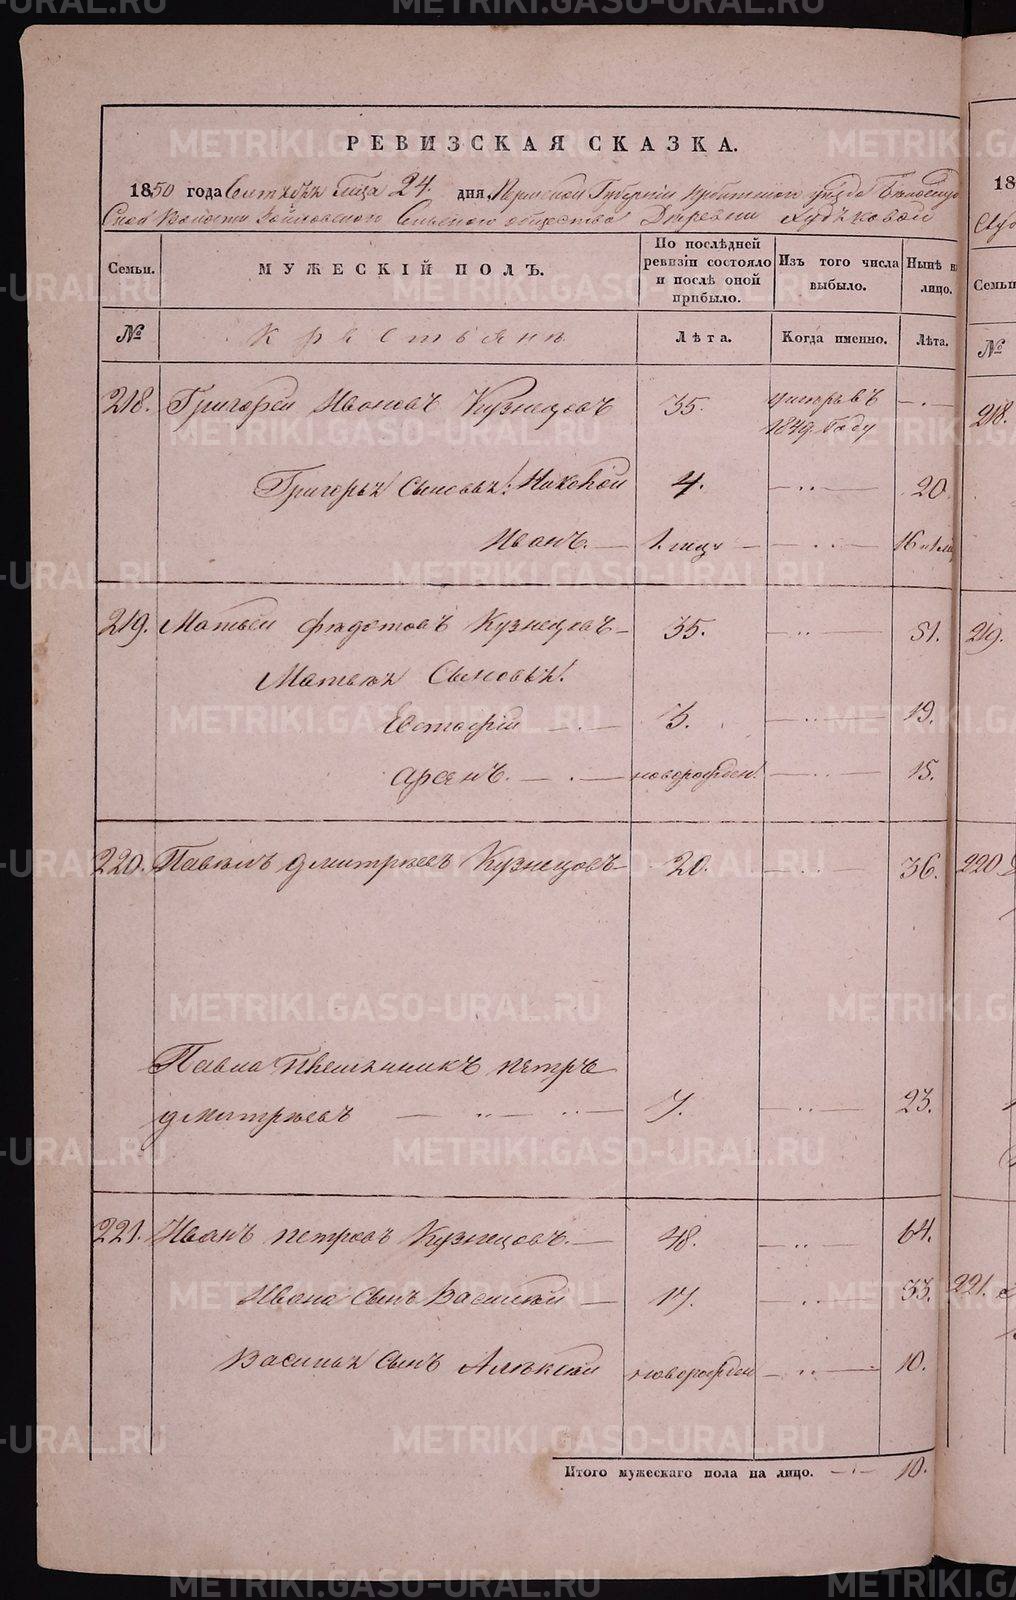 РЕВИЗСКАЯ СКАЗКА.
1850 года Сентября мца 24. дня, Пермской Губернии Ирбитского уезда
Волости Сельского общества Деревни Худяковой
Семьи. МУЖЕСКІЙ ПОЛЪ. По послѣдней ревизіи состояло и послѣ оной прибыло. Изъ того числа выбыло. Нынѣ на лицо.
№ Крестьяне Лѣта. Когда именно. Лѣта.
218. Григорей Ивановъ Кузнецовъ 35. умеръ въ 1849 году
Григорья Сыновья: Николай 4. 20
Иванъ. 1. мцъ 16
219. Матвей Федотовъ Кузнецовъ 35. 51.
Матвея Сыновья!
Евстафій 3. 19.
Арсенъ. новорожден! 15.
220. Павелъ Дмитриевъ Кузнецовъ 20. 36.
Павла Племянникъ Петръ
Дмитриевъ 7. 23.
221. Иванъ Петровъ Кузнецовъ. 48. 64.
Ивана Сынъ Василий 17. 33.
Василья Сынъ Алексей новорожден 10.
Итого мужескаго пола на лицо. 10.
18
Семьи
№
218.
219.
220
221.
METRIKI.GASO-URAL.RU